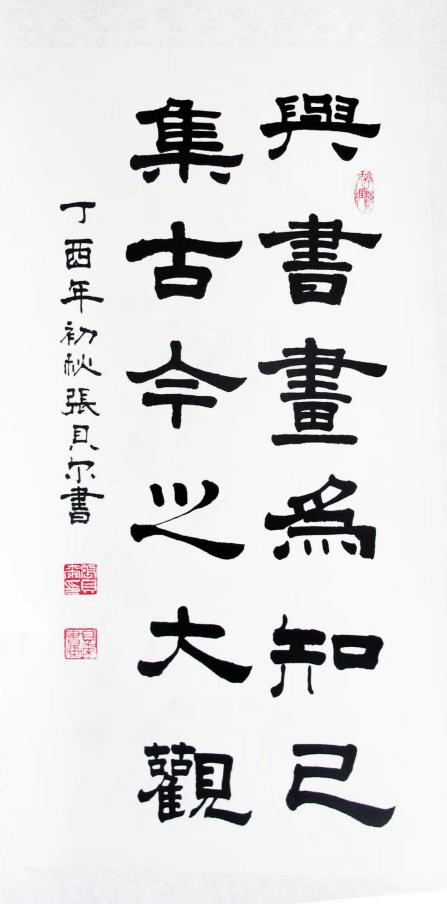 與書畫為知己
集古今之大觀
丁酉年初秋張貝尔書